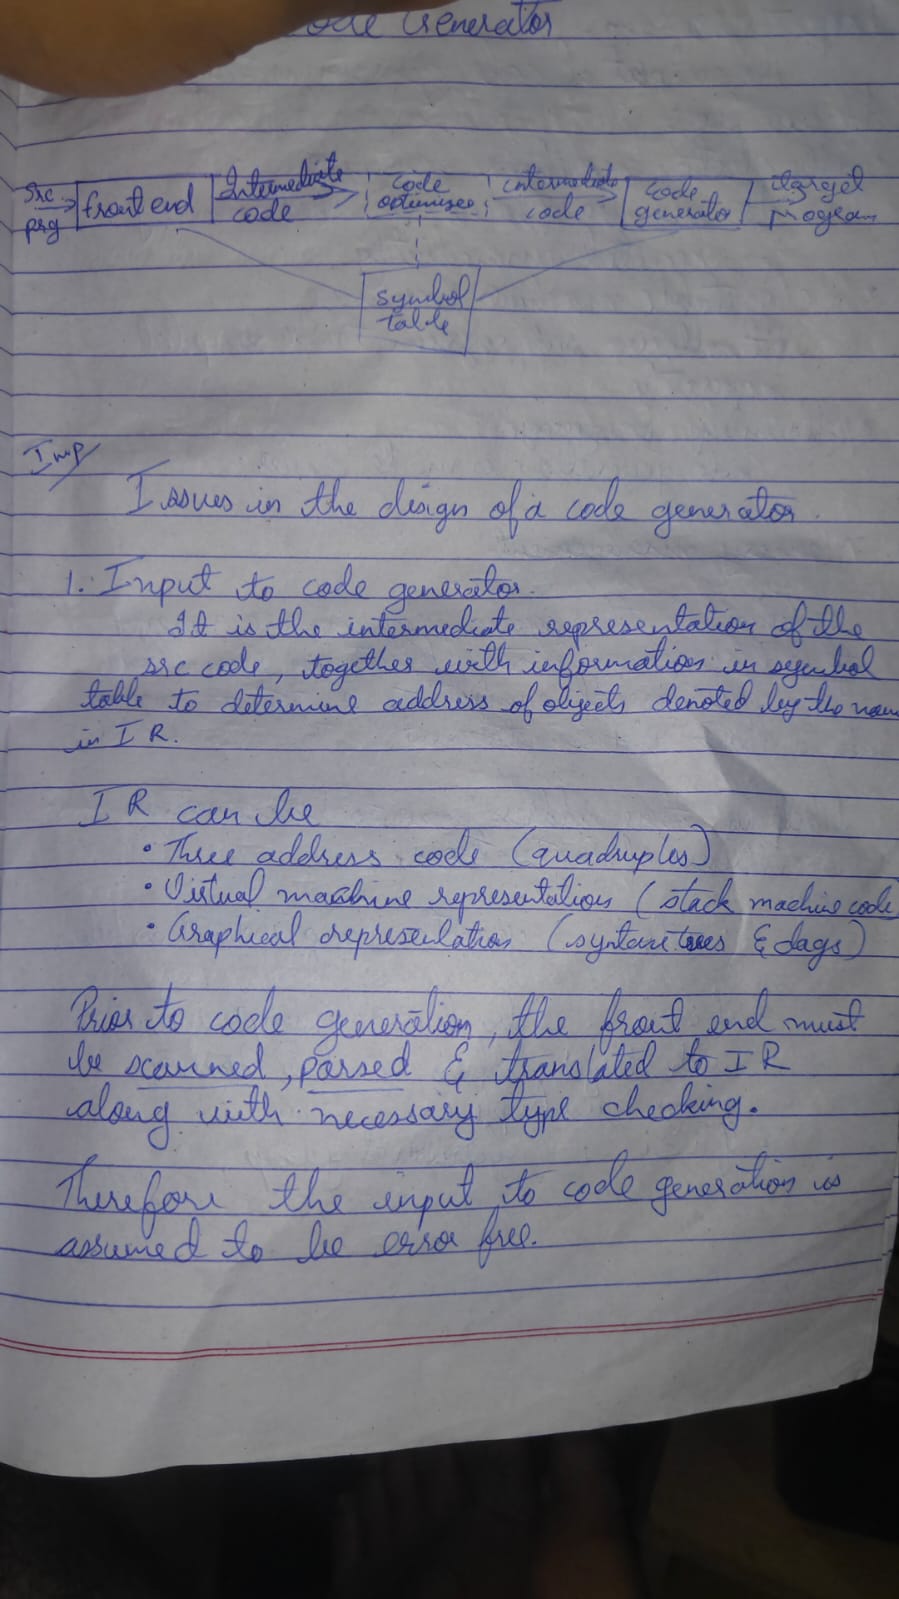 Code Generator
src prg
front end
Intermediate code
code optimizer
intermediate code
code generator
target program
symbol table
Imp
Issues in the design of a code generator.
1. Input to code generator.
It is the intermediate representation of the
src code, together with information in symbol
table to determine address of objects denoted by the name
in IR.
IR can be
• Three address code (quadruples)
• Virtual machine representation (stack machine code
• Graphical representation (syntax trees & dags)
Prior to code generation, the front end must
be scanned, parsed & translated to IR
along with necessary type checking.
Therefore the input to code generation is
assumed to be error free.